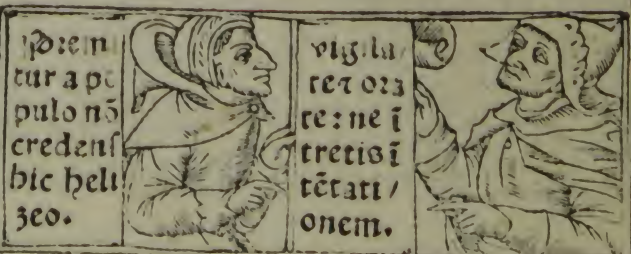 Prem
tur a po
pulo nō
credens
hic heli
zeo.
vigila
re ⁊ ora
re: ne ī
tretis ī
tētati /
onem.